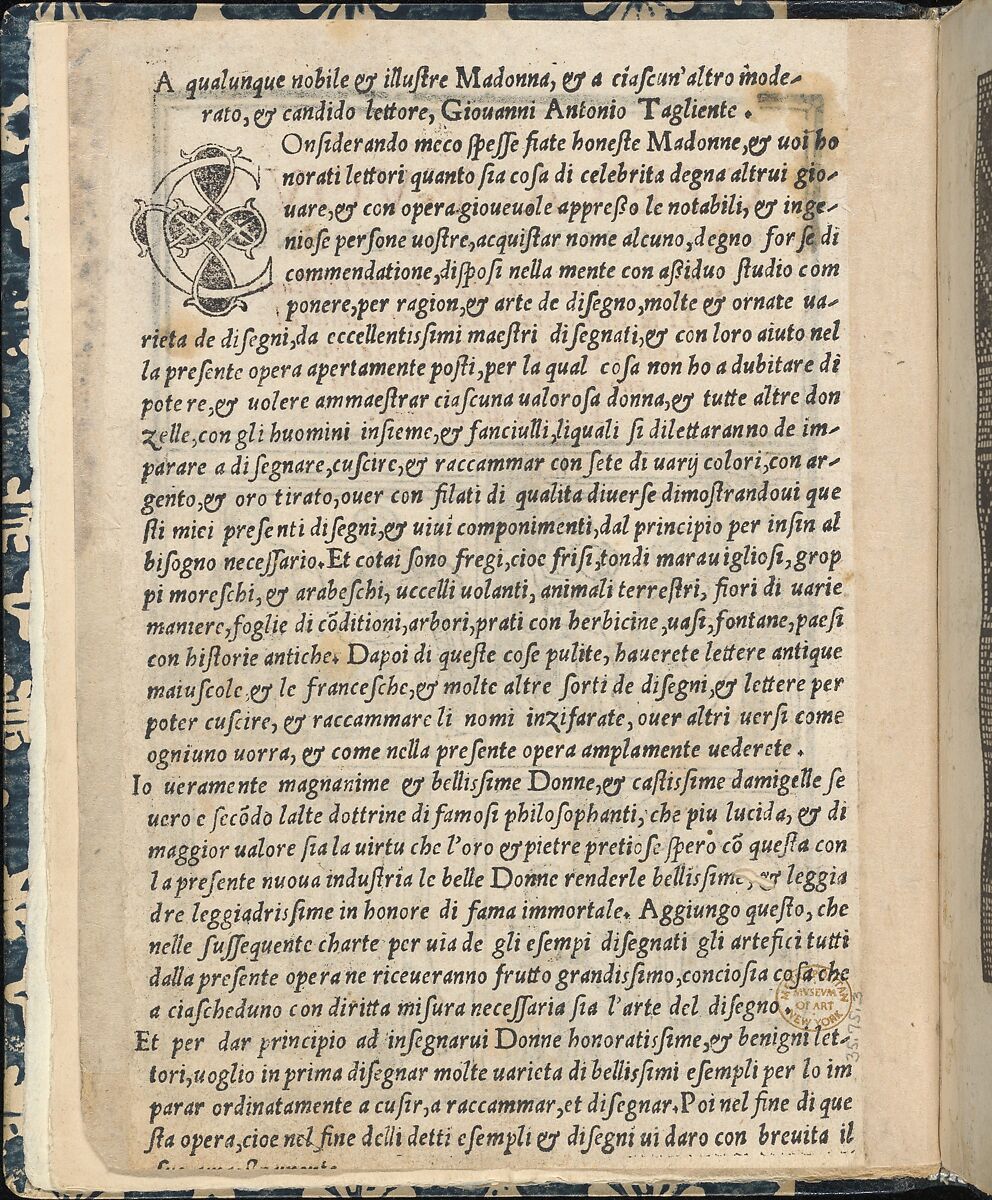 A qualunque nobile & illuſtre Madonna, & a ciaſcun'altro mode-
rato, & candido lettore, Giouanni Antonio Tagliente.
COnſiderando meco ſpeſſe fiate honeſte Madonne, & uoi ho
norati lettori quanto ſia coſa di celebrita degna altrui gio-
uare, & con opera gioueuole appreßo le notabili, & inge-
nioſe perſone uoſtre, acquiſtar nome alcuno, degno forſe di
commendatione, diſpoſi nella mente con aßiduo ſtudio com
ponere, per ragion, & arte de diſegno, molte & ornate ua-
rieta de diſegni, da eccellentiſsimi maeſtri diſegnati, & con loro aiuto nel
la preſente opera apertamente poſti, per la qual coſa non ho a dubitare di
potere, & uolere ammaeſtrar ciaſcuna ualoroſa donna, & tutte altre don
zelle, con gli huomini inſieme, & fanciulli, liquali ſi dilettaranno de im-
parare a diſegnare, cuſcire, & raccammar con ſete di uarij colori, con ar-
gento, & oro tirato, ouer con filati di qualita diuerſe dimoſtrandoui que
ſti miei preſenti diſegni, & uiui componimenti, dal principio per inſin al
biſogno neceſſario. Et cotai ſono fregi, cioe friſi, tondi marauiglioſi, grop
pi moreſchi, & arabeſchi, uccelli uolanti, animali terreſtri, fiori di uarie
maniere, foglie di cõditioni, arbori, prati con herbicine, uaſi, fontane, paeſi
con hiſtorie antiche. Dapoi di queſte coſe pulite, hauerete lettere antique
maiuſcole, & le franceſche, & molte altre ſorti de diſegni, & lettere per
poter cuſcire, & raccammare li nomi inzifarate, ouer altri uerſi come
ogniuno uorra, & come nella preſente opera amplamente uederete.
Io ueramente magnanime & belliſsime Donne, & caſtiſsime damigelle ſe
uero e ſecõdo lalte dottrine di famoſi philoſophanti, che piu lucida, & di
maggior ualore ſia la uirtu che l'oro & pietre pretioſe ſpero cõ queſta con
la preſente nuoua induſtria le belle Donne renderle belliſsime, & leggia
dre leggiadriſsime in honore di fama immortale. Aggiungo queſto, che
nelle ſuſſequente charte per uia de gli eſempi diſegnati gli artefici tutti
dalla preſente opera ne riceueranno frutto grandiſsimo, concioſia coſa che
a ciaſcheduno con diritta miſura neceſſaria ſia l'arte del diſegno.
Et per dar principio ad inſegnarui Donne honoratiſsime, & benigni let-
tori, uoglio in prima diſegnar molte uarieta di belliſsimi eſempli per lo im
parar ordinatamente a cuſir, a raccammar, et diſegnar. Poi nel fine di que
ſta opera, cioe nel fine delli detti eſempli & diſegni ui daro con breuita il
MUSEUM
OF ART
NEW YORK